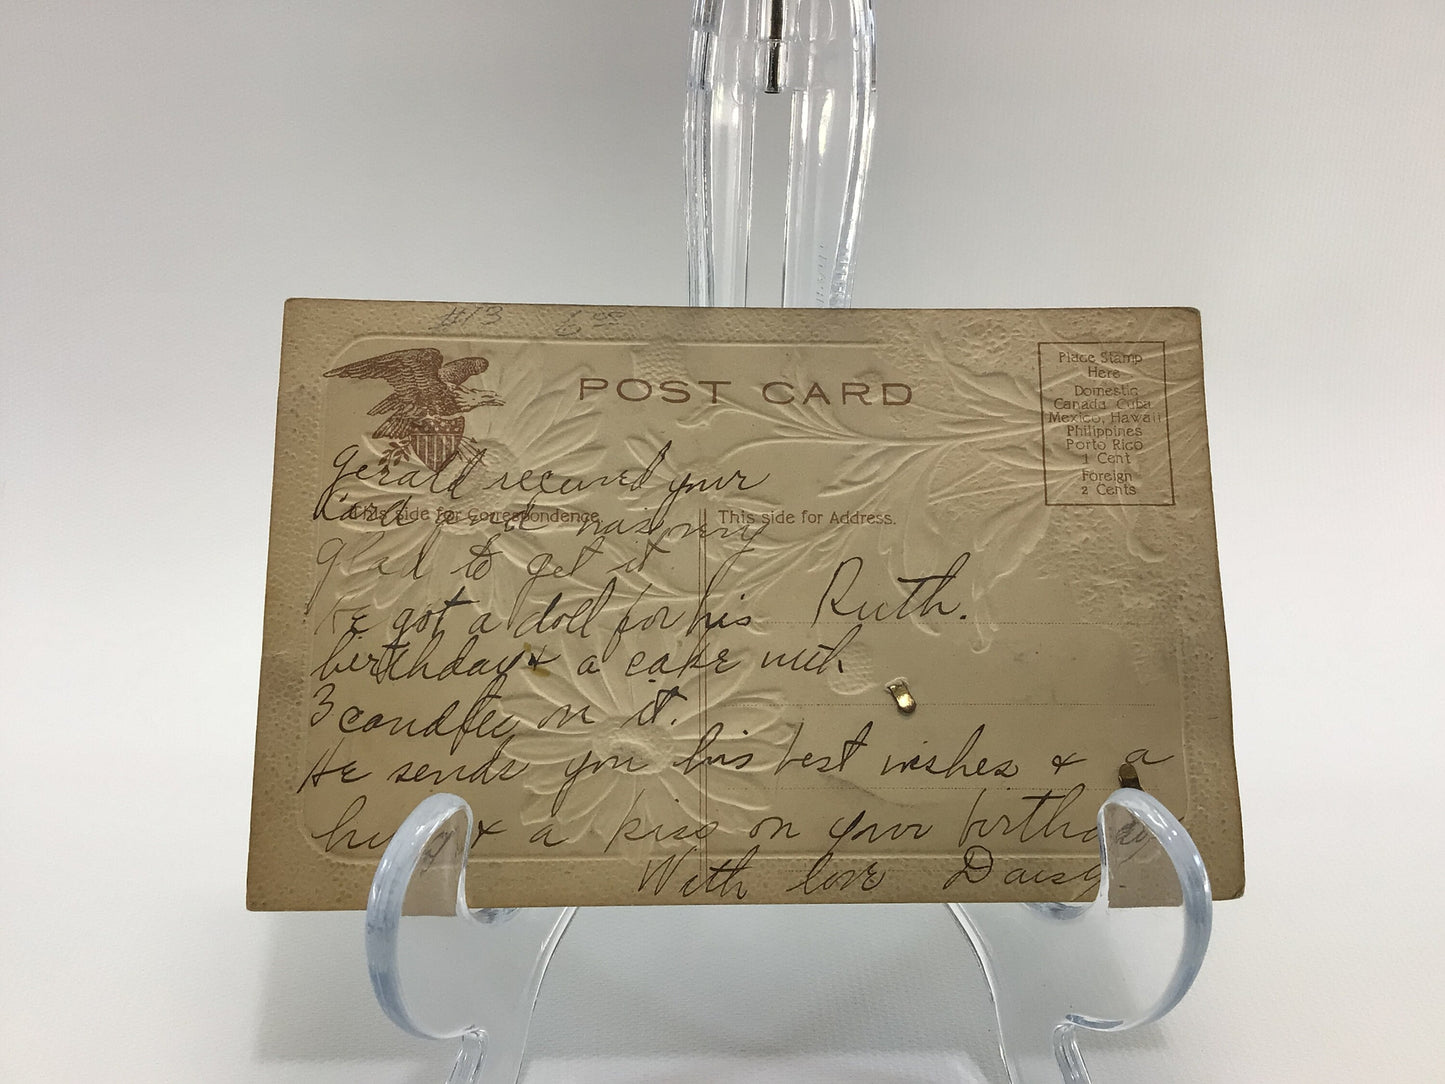 #13 6.00
POST CARD
Place Stamp
Here
Domestic
Canada Cuba
Mexico, Hawaii
Philippines
Porto Rico
1 Cent
Foreign
2 Cents
This side for Correspondence
This side for Address.
Gerald received your
Card and was very
glad to get it
He got a doll for his
birthday & a cake with
3 candles on it.
He sends you his best wishes & a
hug & a kiss on your birthday
With love Daisy.
Ruth.